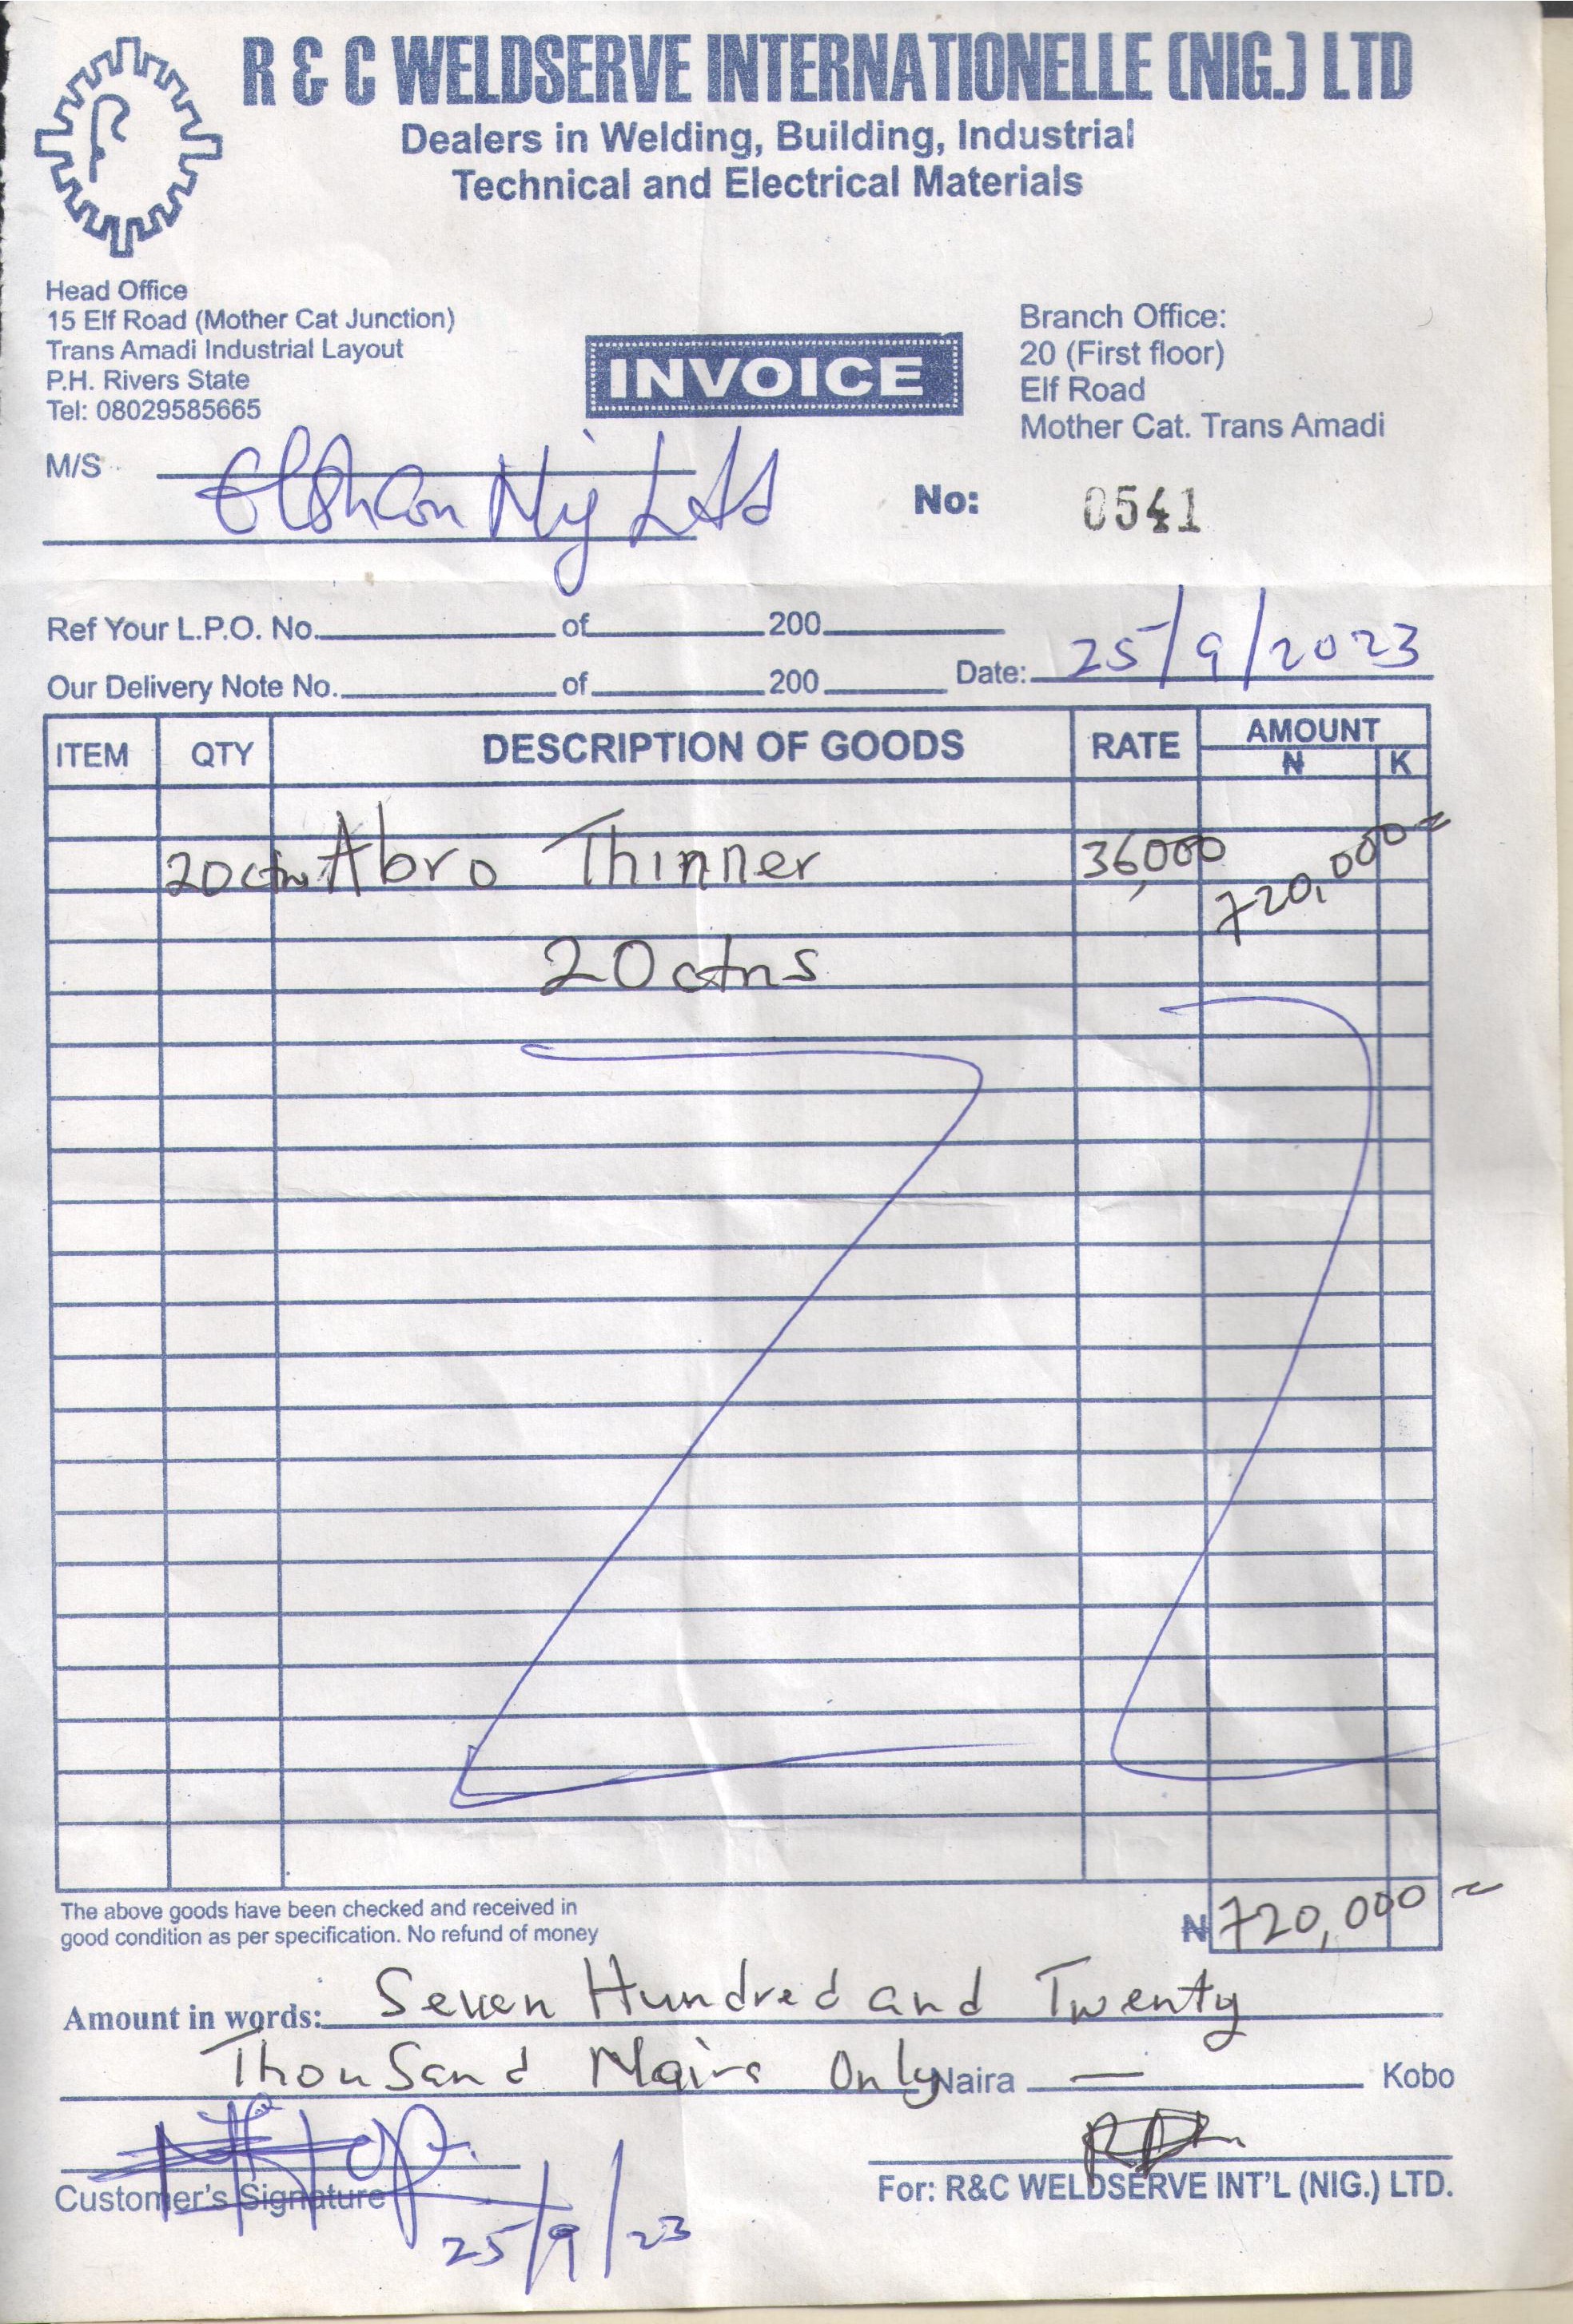 R & C WELDSERVE INTERNATIONELLE (NIG.) LTD
Dealers in Welding, Building, Industrial
Technical and Electrical Materials
Head Office
15 Elf Road (Mother Cat Junction)
Trans Amadi Industrial Layout
P.H. Rivers State
Tel: 08029585665
INVOICE
Branch Office:
20 (First floor)
Elf Road
Mother Cat. Trans Amadi
M/S Nig Ltd
No: 0541
Ref Your L.P.O. No. of 200
Our Delivery Note No. of 200 Date: 25/9/2023
ITEM QTY DESCRIPTION OF GOODS RATE AMOUNT
₦ K
20ctns Abro Thinner 36,000 720,000=
20ctns
The above goods have been checked and received in
good condition as per specification. No refund of money
₦ 720,000
Amount in words: Seven Hundred and Twenty
Thousand Naira Only Naira — Kobo
Customer's Signature
25/9/23
For: R&C WELDSERVE INT'L (NIG.) LTD.